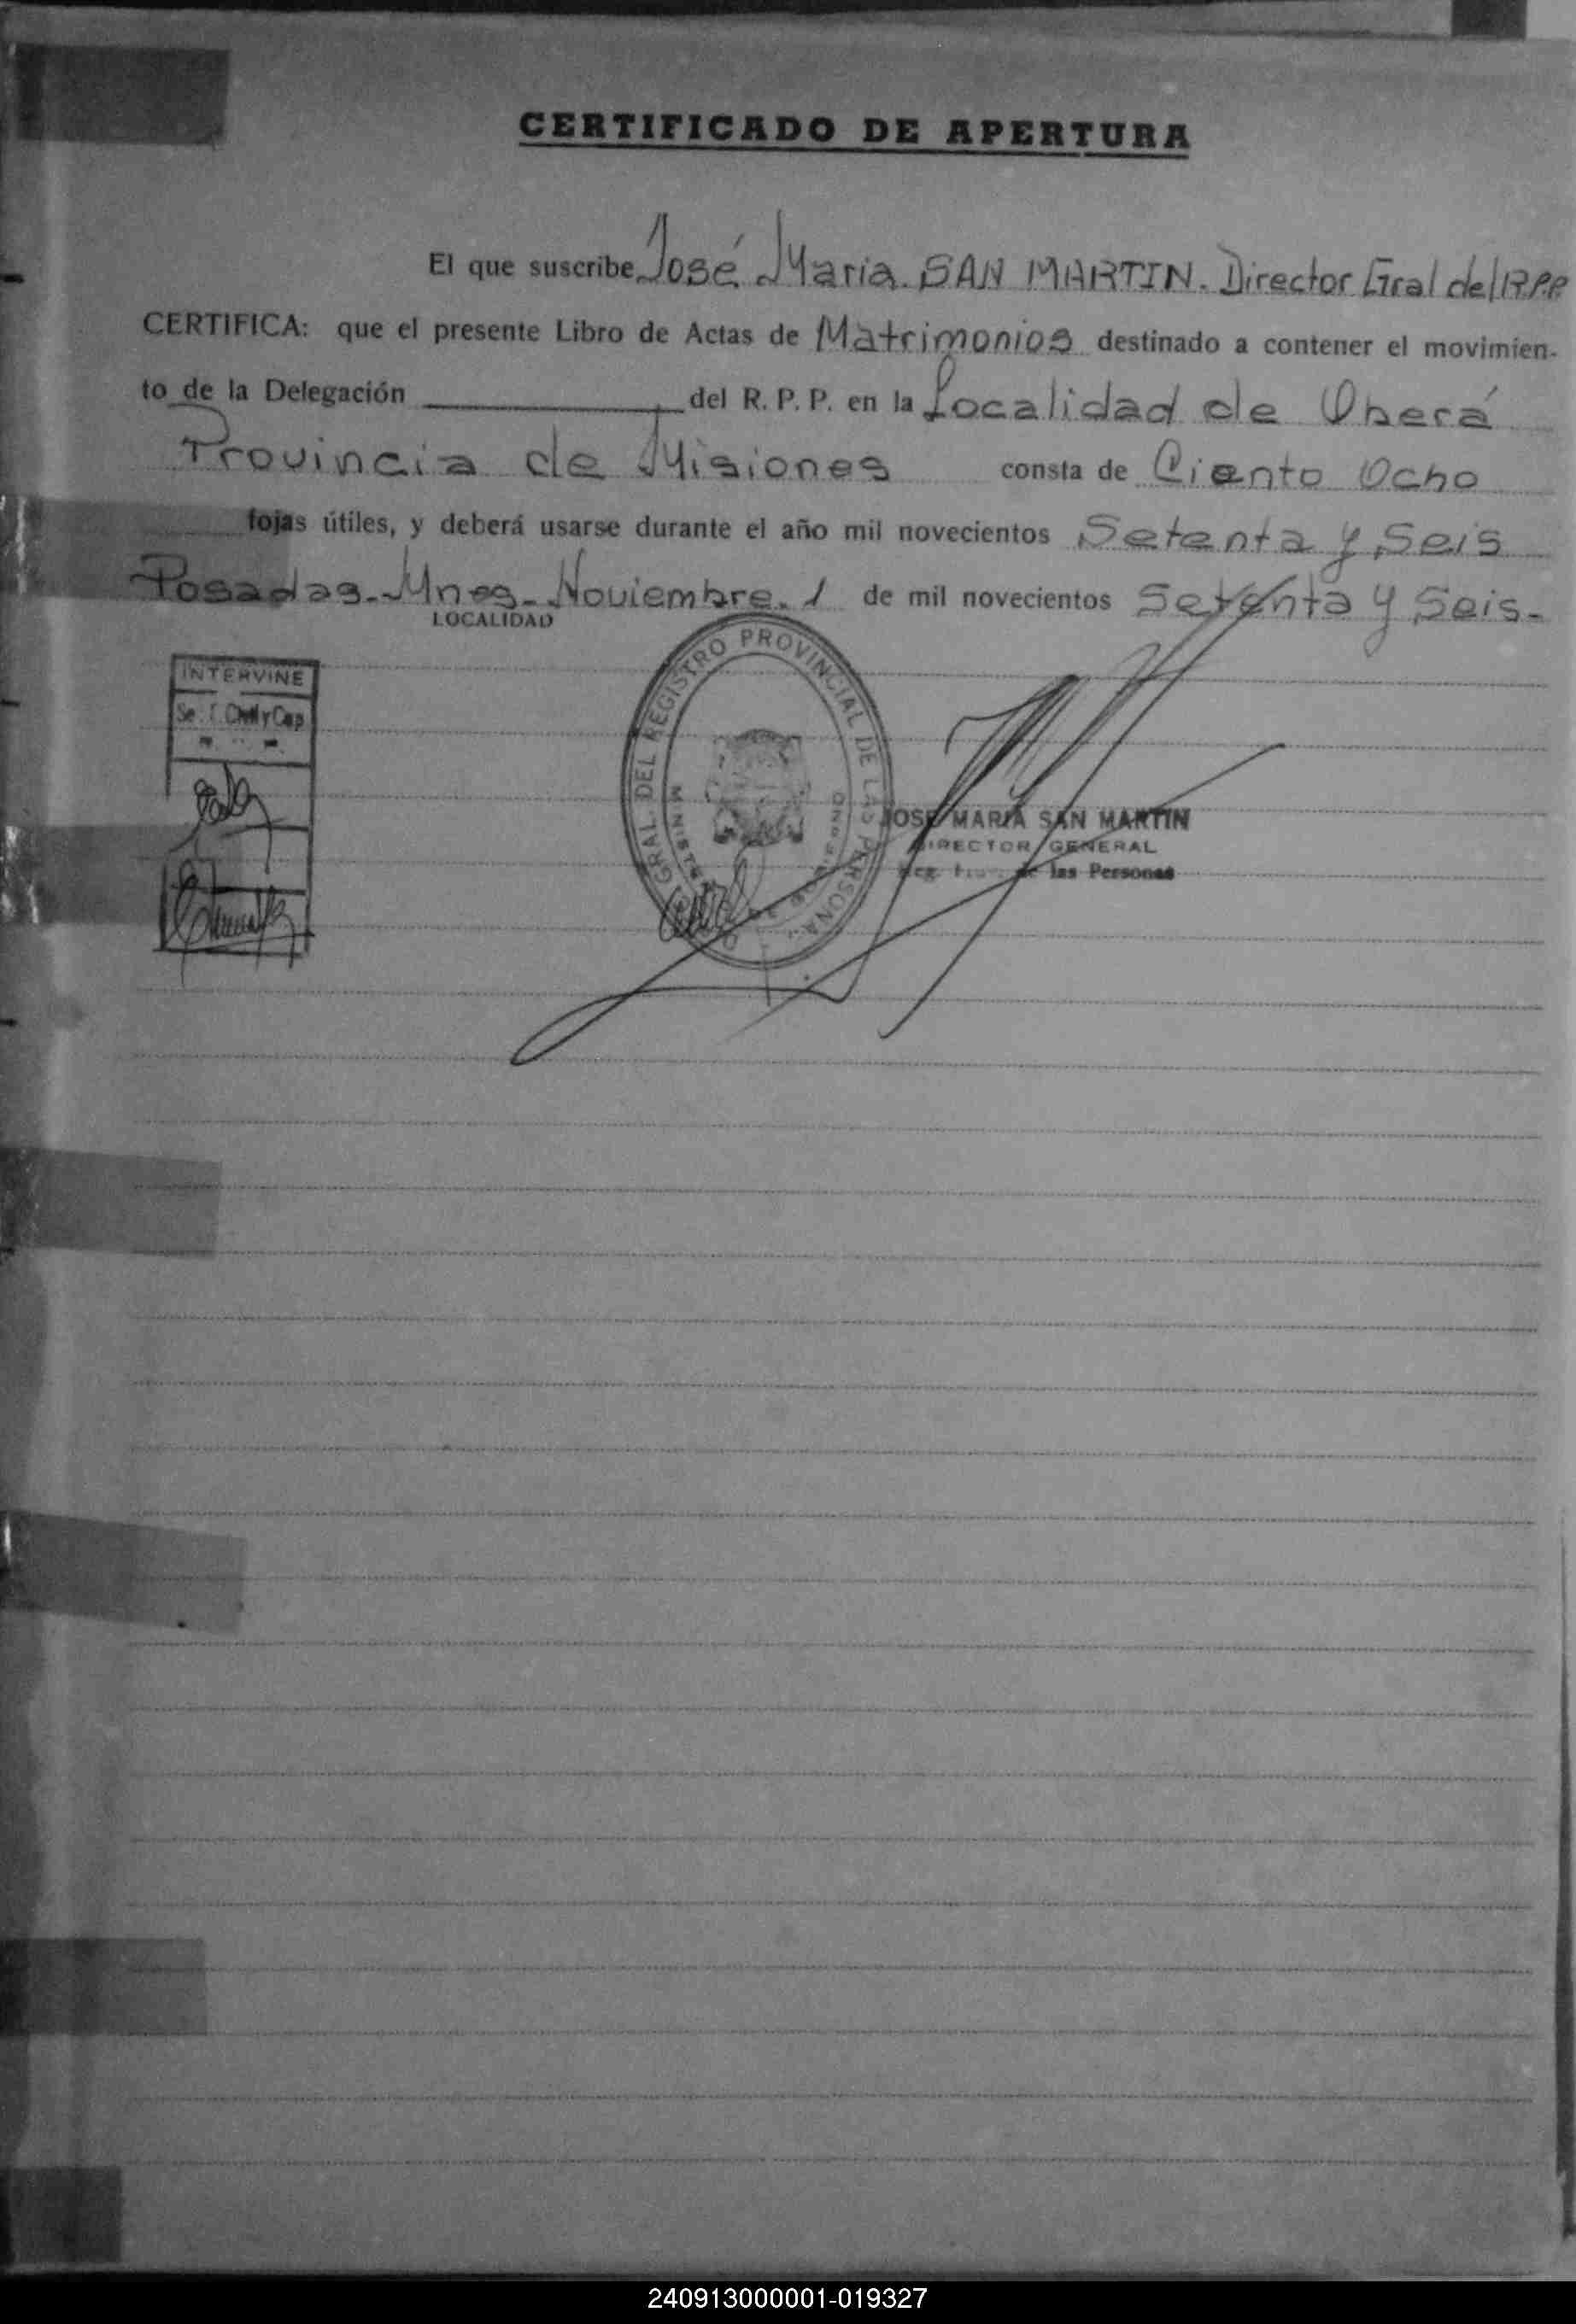 CERTIFICADO DE APERTURA
El que suscribe José Maria. SAN MARTIN. Director Gral del R.P.P
CERTIFICA: que el presente Libro de Actas de Matrimonios destinado a contener el movimien-
to de la Delegación del R. P. P. en la Localidad de Oberá
Provincia de Misiones consta de Ciento Ocho
fojas útiles, y deberá usarse durante el año mil novecientos Setenta y Seis
Posadas-Mnes-Noviembre. 1 de mil novecientos Setenta y Seis-
LOCALIDAD
INTERVINE
Civil y Cap
GRAL. DEL REGISTRO PROVINCIAL DE LAS PERSONAS
JOSE MARIA SAN MARTIN
DIRECTOR GENERAL
Reg. Prov. de las Personas
240913000001-019327